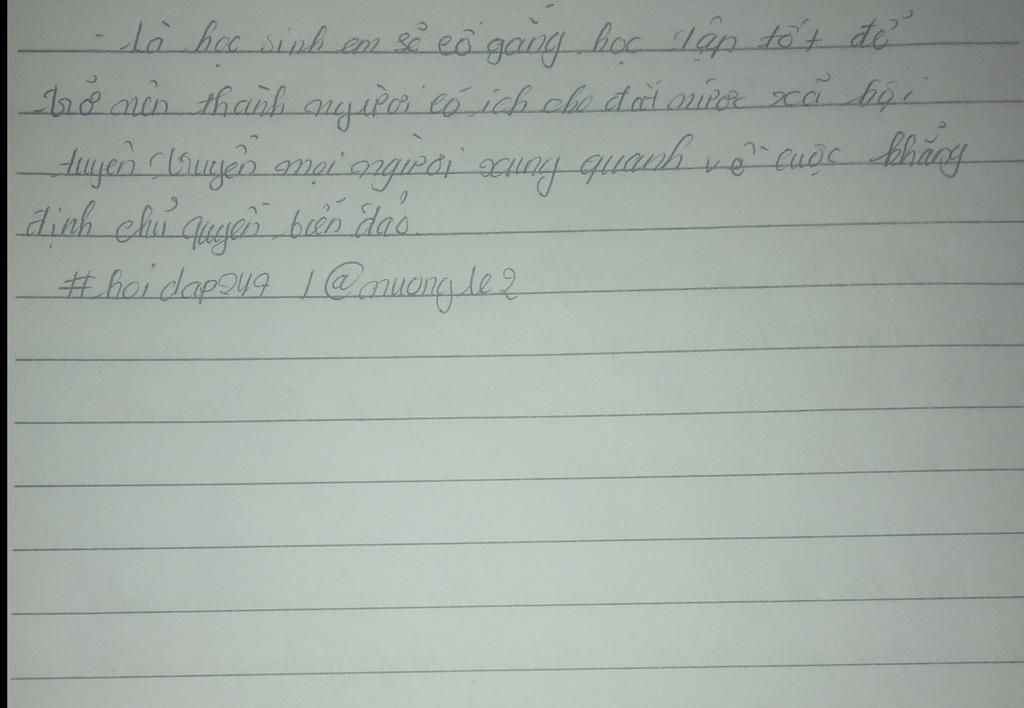 - Là học sinh em sẽ cố gắng học tập tốt để
trở nên thành người có ích cho đất nước xã hội
tuyên truyền mọi người xung quanh về cuộc khẳng
định chủ quyền biển đảo.
#hoidap247 / @muongle2